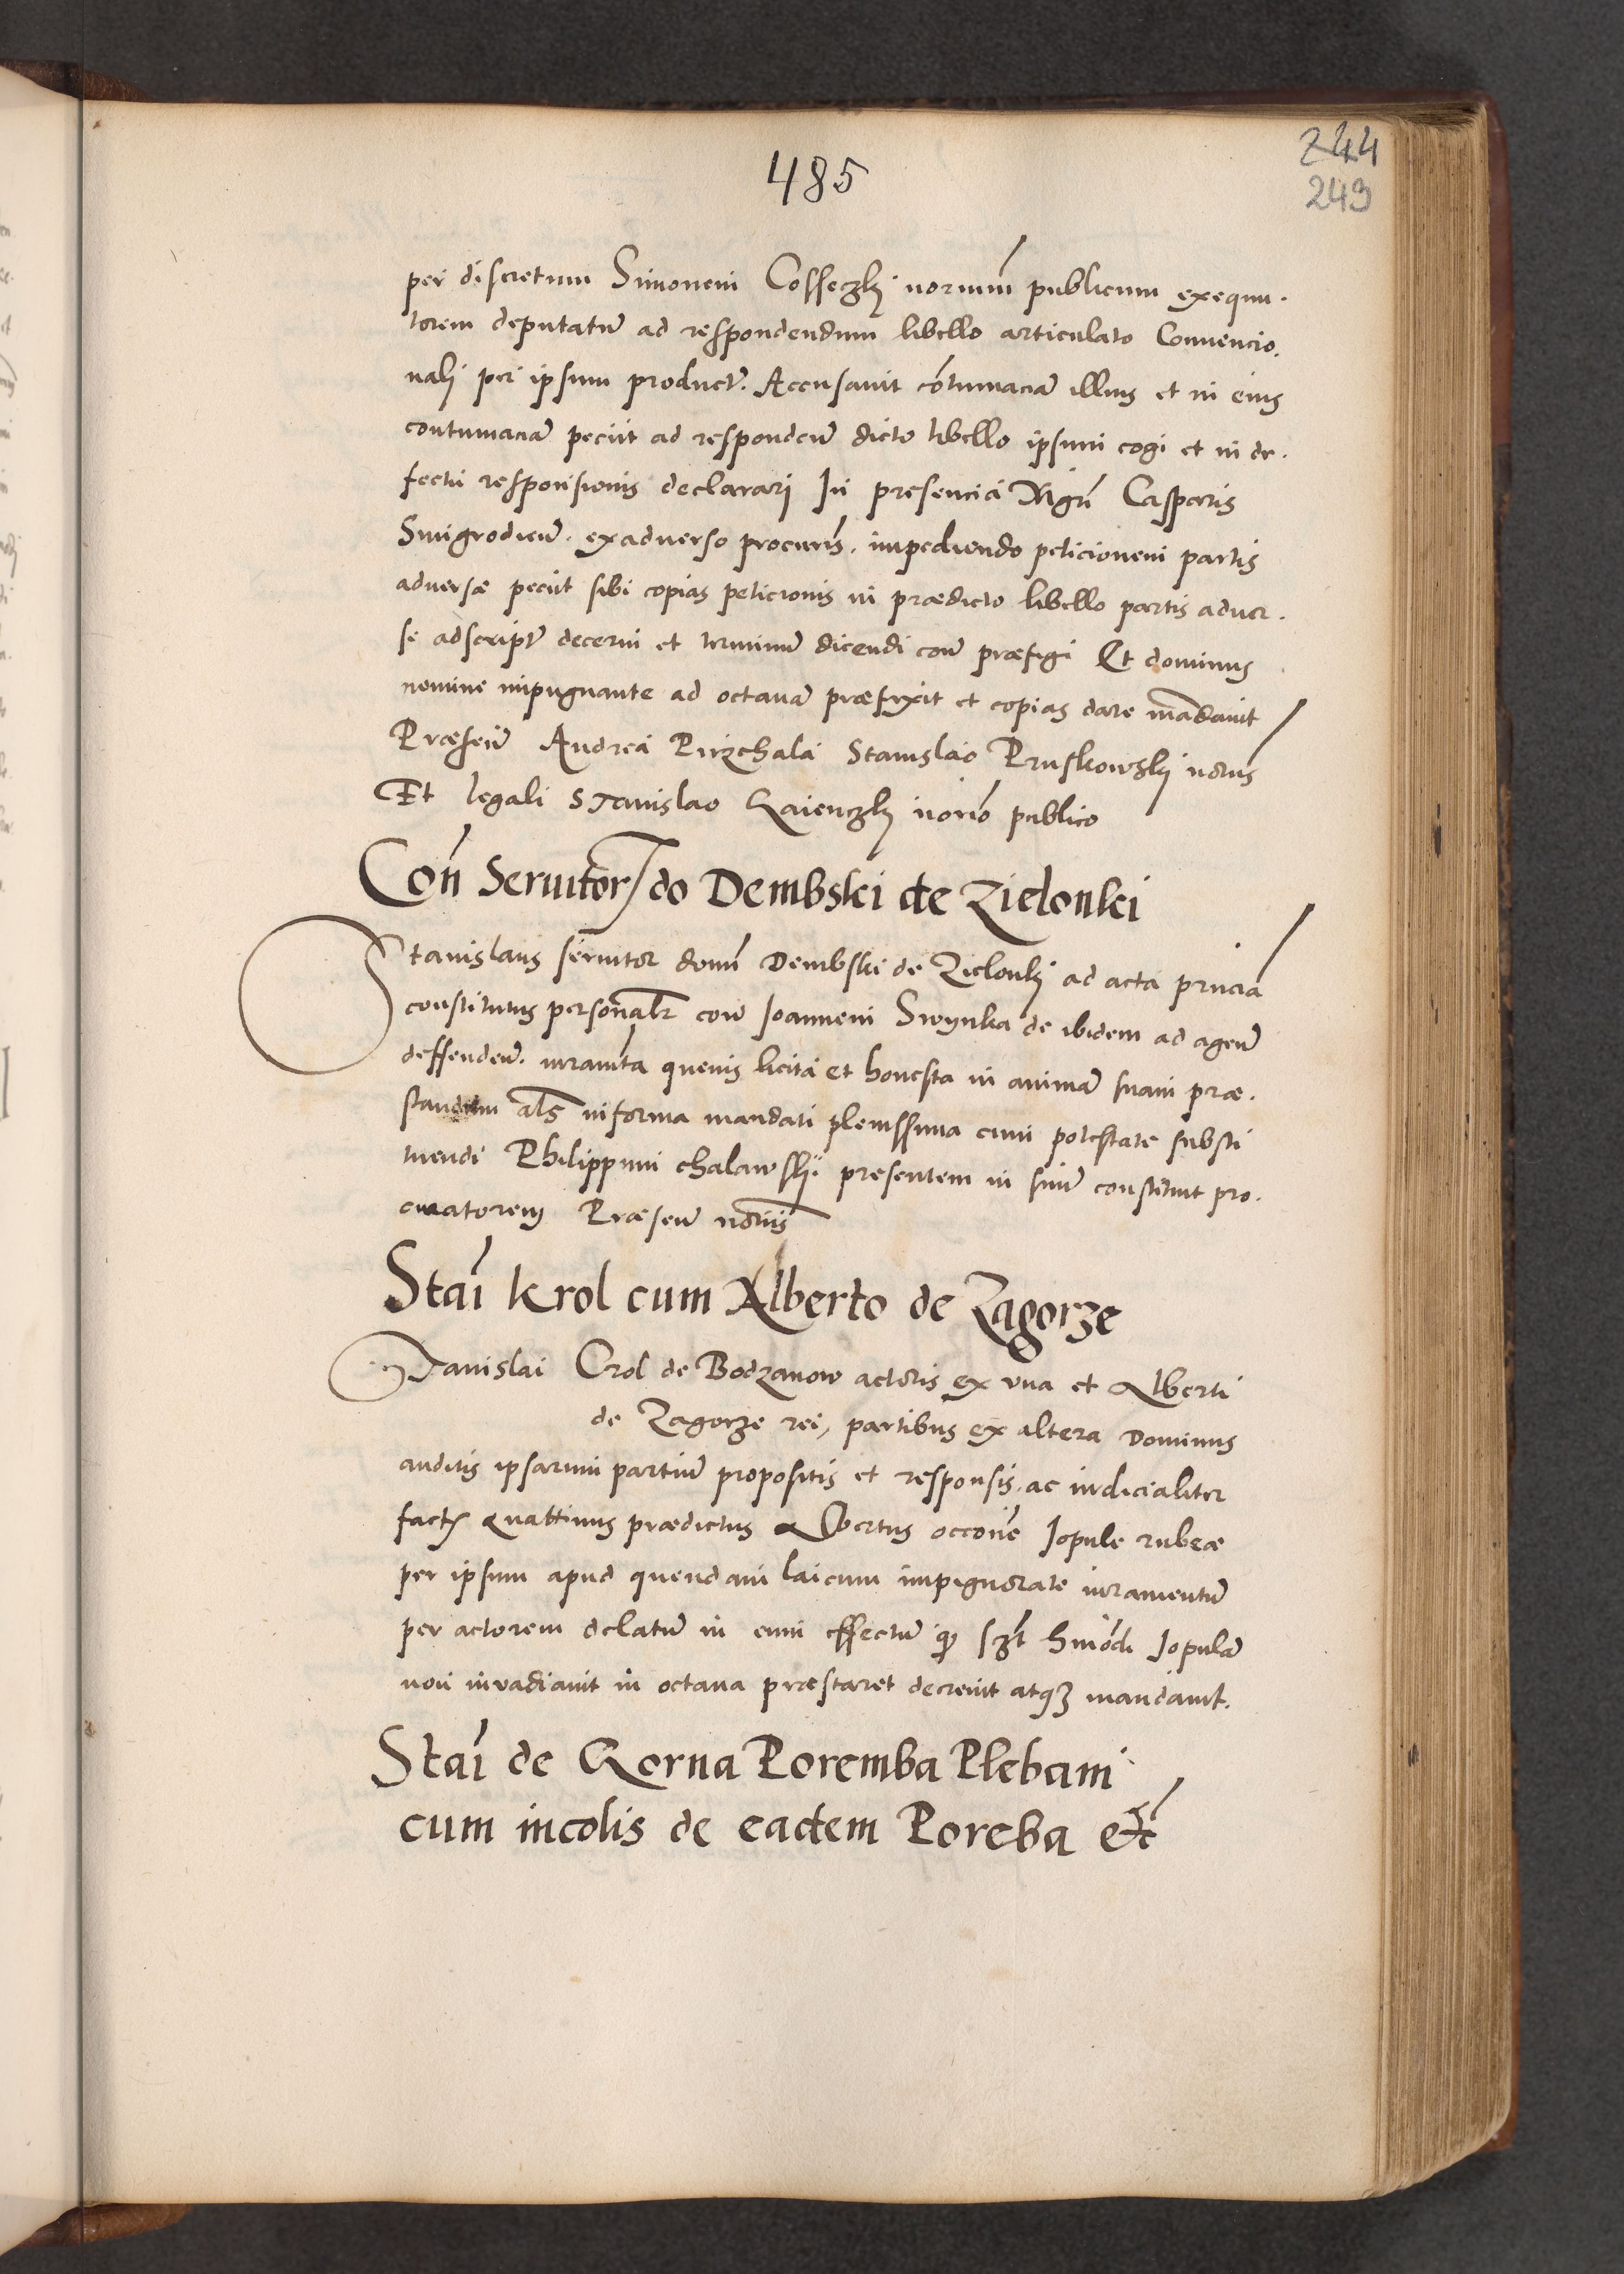 485
244
243
per discretum Simonem Cossezkj norium publicum exequu.
torem deputatū ad respondendum libello articulato Conuencio.
nalj per ipsum product. Accusauit cōtumaciā illius et in eius
contumaciā peciit ad respondeñ dicto libello ipsum cogi et in de.
fectu responsionis declararj In presencia Mgri Casparis
Smigrodicum. exaduerso procuris. impediendo peticionem partis
aduersæ peciit sibi copias peticionis in prædicto libello partis aduer.
se adscript decerni et terminū dicendi con præfigi Et dominus
nemine impugnante ad octauā præfixit et copias dare mādauit
Præseñ Andrea Pirzchala Stanislao Pruskowskj notus
Et legali Stanislao Gaienczkj norio publico
Con Seruitor do Dembski de Zielonki
Stanislaus seruitor domi Dembski de Zielonkj ad acta pñcia
constitutus personalr con Joannem Swynka de ibidem ad ageñ
deffendeñ. iuramta queuis licita et honesta in animā suam præ.
standum als in forma mandati plenissima cum potestate substi
tuendi Philippum chalawskj. presentem in suū constituit pro.
curatorem Præseñ notus
Stai Krol cum Alberto de Zagorze
Stanislai Crol de Bodzanow actoris ex vna et Alberti
de Zagorze rei, partibus ex altera Dominus
auditis ipsarum partiū propositis et responsis, ac iudicialiter
fact quattinus prædictus Albertus occone Jopule rubeæ
per ipsum apud quendam laicum impignorate iuramentū
per actorem delatū in eum effectū hmōdi Jopulā
non inuadiauit in octaua præstaret decreuit atq3 mandauit.
Stai de Gorna Poremba Plebani
cum incolis de eadem Poreba etc